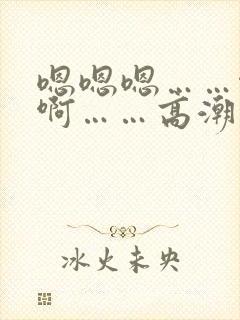 嗯嗯嗯……
啊……高潮
冰火未央